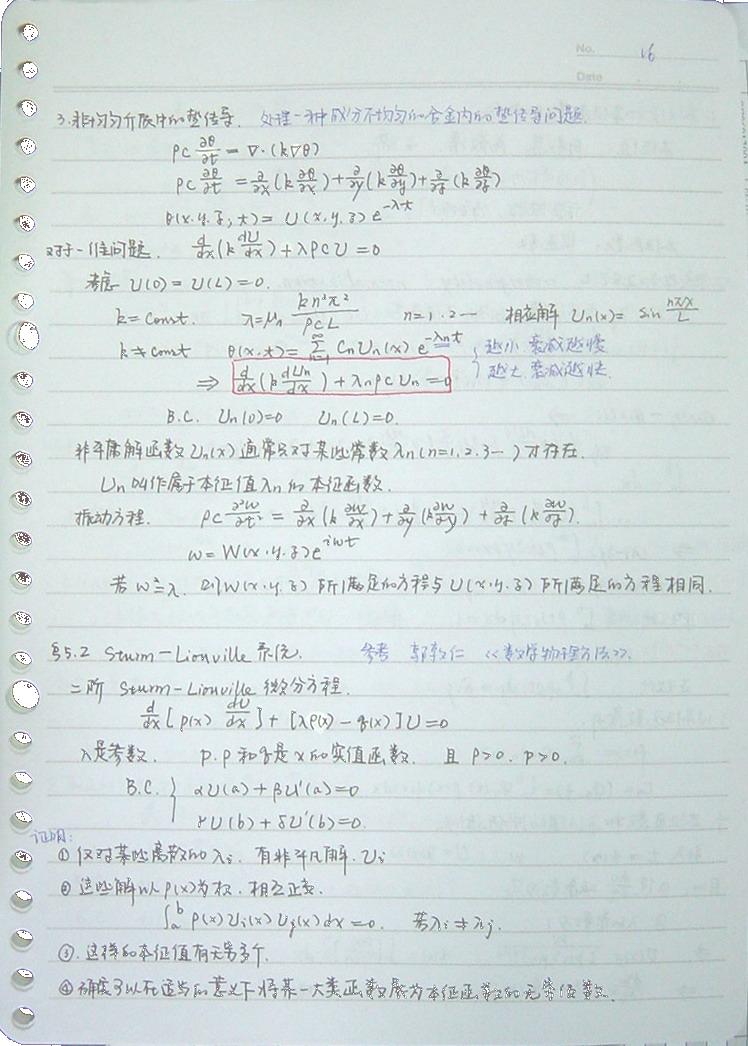 No. 16
Date
3. 非均匀介质中的热传导. 处理一种成分不均匀的合金内的热传导问题.
ρc ∂θ/∂t = ∇·(k∇θ)
ρc ∂θ/∂t = ∂/∂x (k ∂θ/∂x) + ∂/∂y (k ∂θ/∂y) + ∂/∂z (k ∂θ/∂z)
θ(x.y.z;t) = U(x,y,z) e^{-λt}
对于一维问题. d/dx (k dU/dx) + λρcU = 0
考虑 U(0) = U(L) = 0.
k = const. λ = μn kn²π²/ρcL n=1,2… 相应解 Un(x) = sin nπx/L
k ≠ const θ(x,t) = Σ_{n=1}^{∞} Cn Un(x) e^{-λn t} { 越小 衰减越慢
越大. 衰减越快.
⇒ d/dx (k dUn/dx) + λn ρc Un = 0
B.C. Un(0)=0 Un(L)=0.
非平庸解函数 Un(x) 通常只对某些常数 λn (n=1,2,3…) 才存在.
Un 叫作属于本征值 λn 的本征函数.
振动方程. ρc ∂²w/∂t² = ∂/∂x (k ∂w/∂x) + ∂/∂y (k ∂w/∂y) + ∂/∂z (k ∂w/∂z).
w = W(x,y,z) e^{iωt}
若 ω² = λ. 则 W(x,y,z) 所满足的方程与 U(x,y,z) 所满足的方程相同.
§5.2 Sturm-Liouville 系统. 参考 郭敦仁 《数学物理方法》.
二阶 Sturm-Liouville 微分方程.
d/dx [p(x) dU/dx] + [λρ(x) - q(x)] U = 0
λ是参数. p. ρ 和 q 是 x 的实值函数. 且 p>0. ρ>0.
B.C. { αU(a) + βU'(a) = 0
γU(b) + δU'(b) = 0.
证明:
① 仅对某些离散的 λi, 有非平凡解. Ui
② 这些解以 ρ(x) 为权, 相互正交.
∫_a^b ρ(x) Ui(x) Uj(x) dx = 0. 若 λi ≠ λj.
③. 这样的本征值有无穷多个.
④ 确实可以在适当的意义下将某一大类函数展为本征函数的无穷级数.